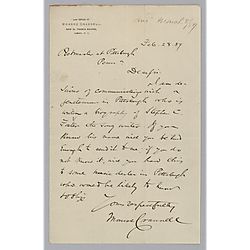 LAW OFFICE OF
Ans'd
Feb. 28 89
Postmaster at Pittsburgh
Penna
Dear Sir
I am de-
sirous of communicating with a
gentleman in Pittsburgh who is
writing a biography of Stephen C.
Foster the song writer. If you
know his name will you be kind
enough to send it to me. If you do
not know it, will you hand this
to some music dealer in Pittsburgh
who would be likely to know
Yours respectfully